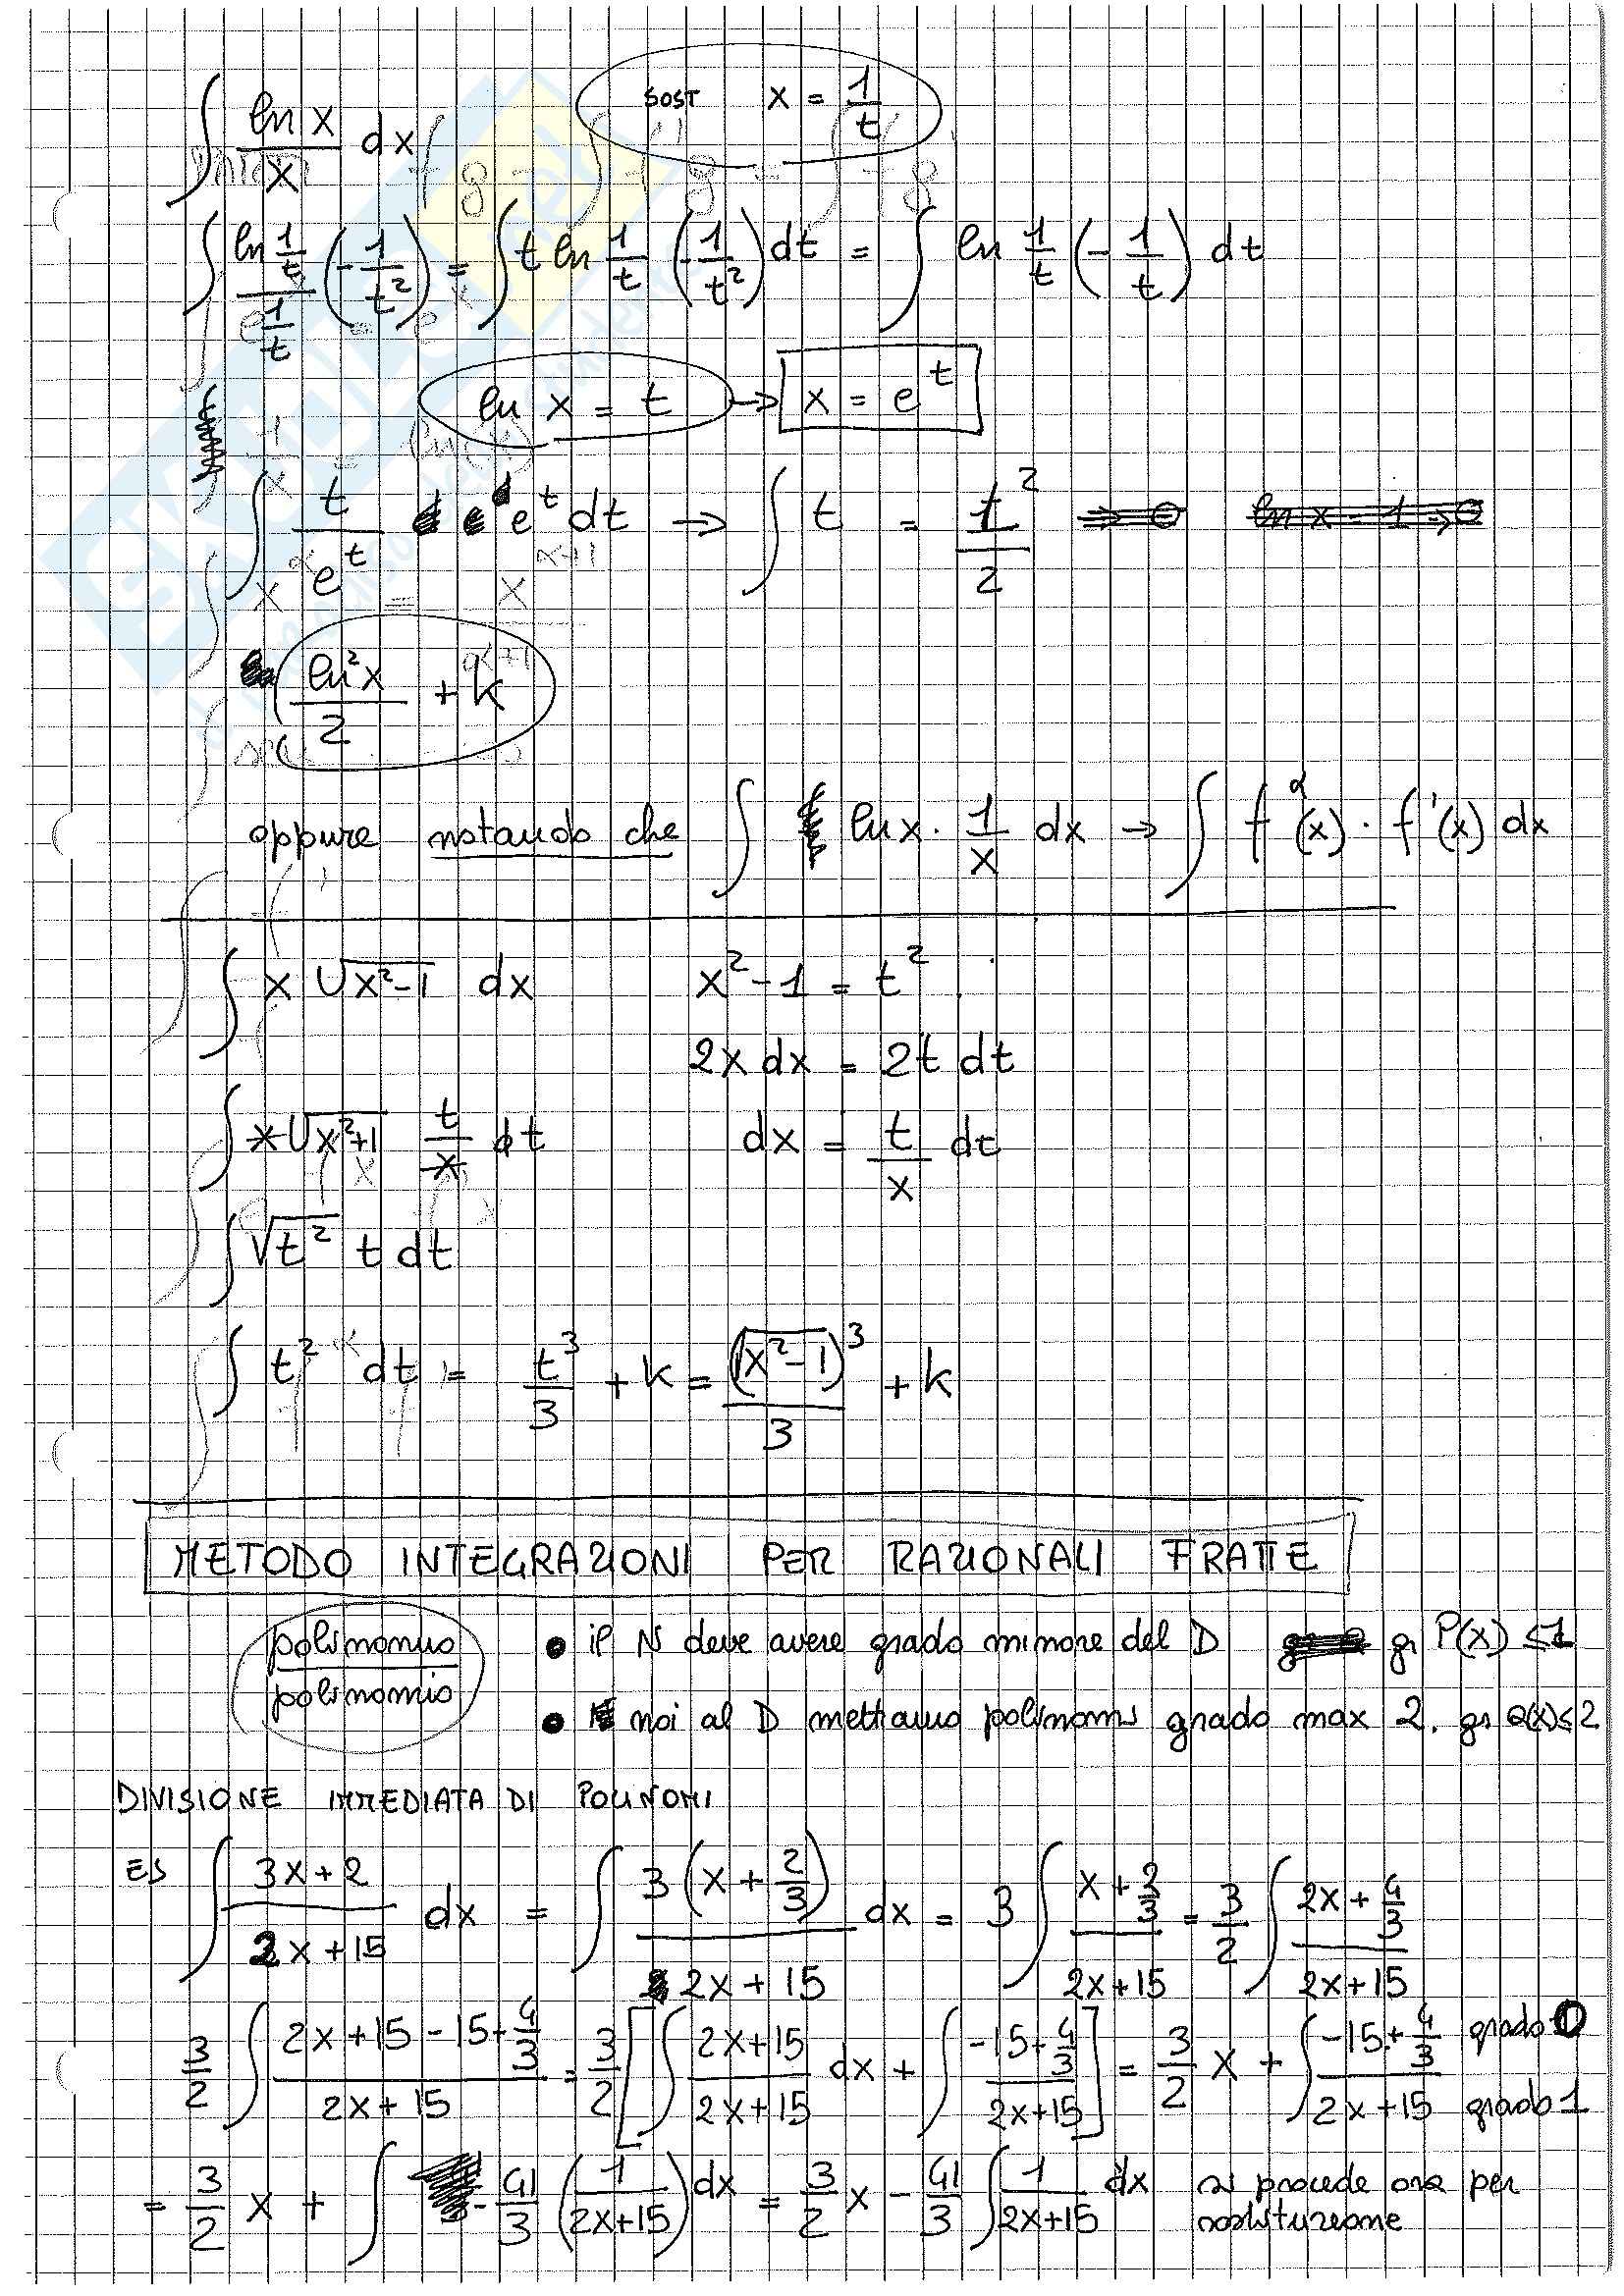 ∫ ln x / x dx   SOST x = 1/t
∫ (ln 1/t)/(1/t) (-1/t²) = ∫ t ln 1/t (-1/t²) dt = ∫ ln 1/t (-1/t) dt
ln x = t → x = e^t
∫ t/e^t e^t dt → ∫ t = t²/2
ln²x/2 + k
oppure notando che ∫ ln x · 1/x dx → ∫ f^α(x) · f'(x) dx
∫ x √(x²-1) dx   x²-1 = t²
2x dx = 2t dt
∫ x √(x²+1) t/x dt   dx = t/x dt
∫ √(t²) t dt
∫ t² dt = t³/3 + k = (√(x²-1))³/3 + k
METODO INTEGRAZIONI PER RAZIONALI FRATTE
polinomio/polinomio • il N deve avere grado minore del D gr P(x) ≤1
• noi al D mettiamo polinomi grado max 2. gr Q(x)≤2
DIVISIONE IMMEDIATA DI POLINOMI
ES ∫ (3x+2)/(2x+15) dx = ∫ 3(x+2/3)/(2x+15) dx = 3 ∫ (x+2/3)/(2x+15) = 3/2 ∫ (2x+4/3)/(2x+15)
3/2 ∫ (2x+15-15+4/3)/(2x+15) = 3/2 [∫ (2x+15)/(2x+15) dx + ∫ (-15+4/3)/(2x+15)] = 3/2 x + ∫ (-15+4/3)/(2x+15) grado 0 grado 1
= 3/2 x + ∫ -41/3 (1/(2x+15)) dx = 3/2 x - 41/3 ∫ 1/(2x+15) dx si procede ora per
sostituzione